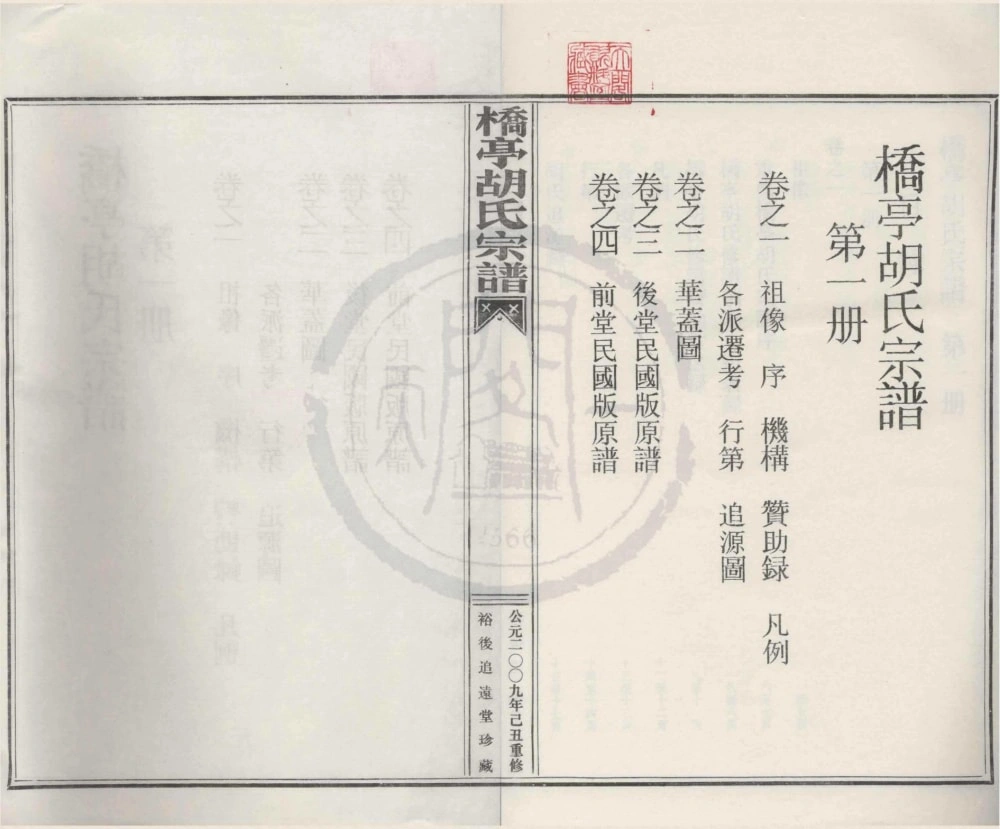 橋亭胡氏宗譜
第一册
卷之一 祖像 序 機構 贊助録 凡例
各派遷考 行第 追源圖
卷之二 華蓋圖
卷之三 後堂民國版原譜
卷之四 前堂民國版原譜
橋亭胡氏宗譜
公元二〇〇九年己丑重修
裕後追遠堂珍藏
天一閣
1566